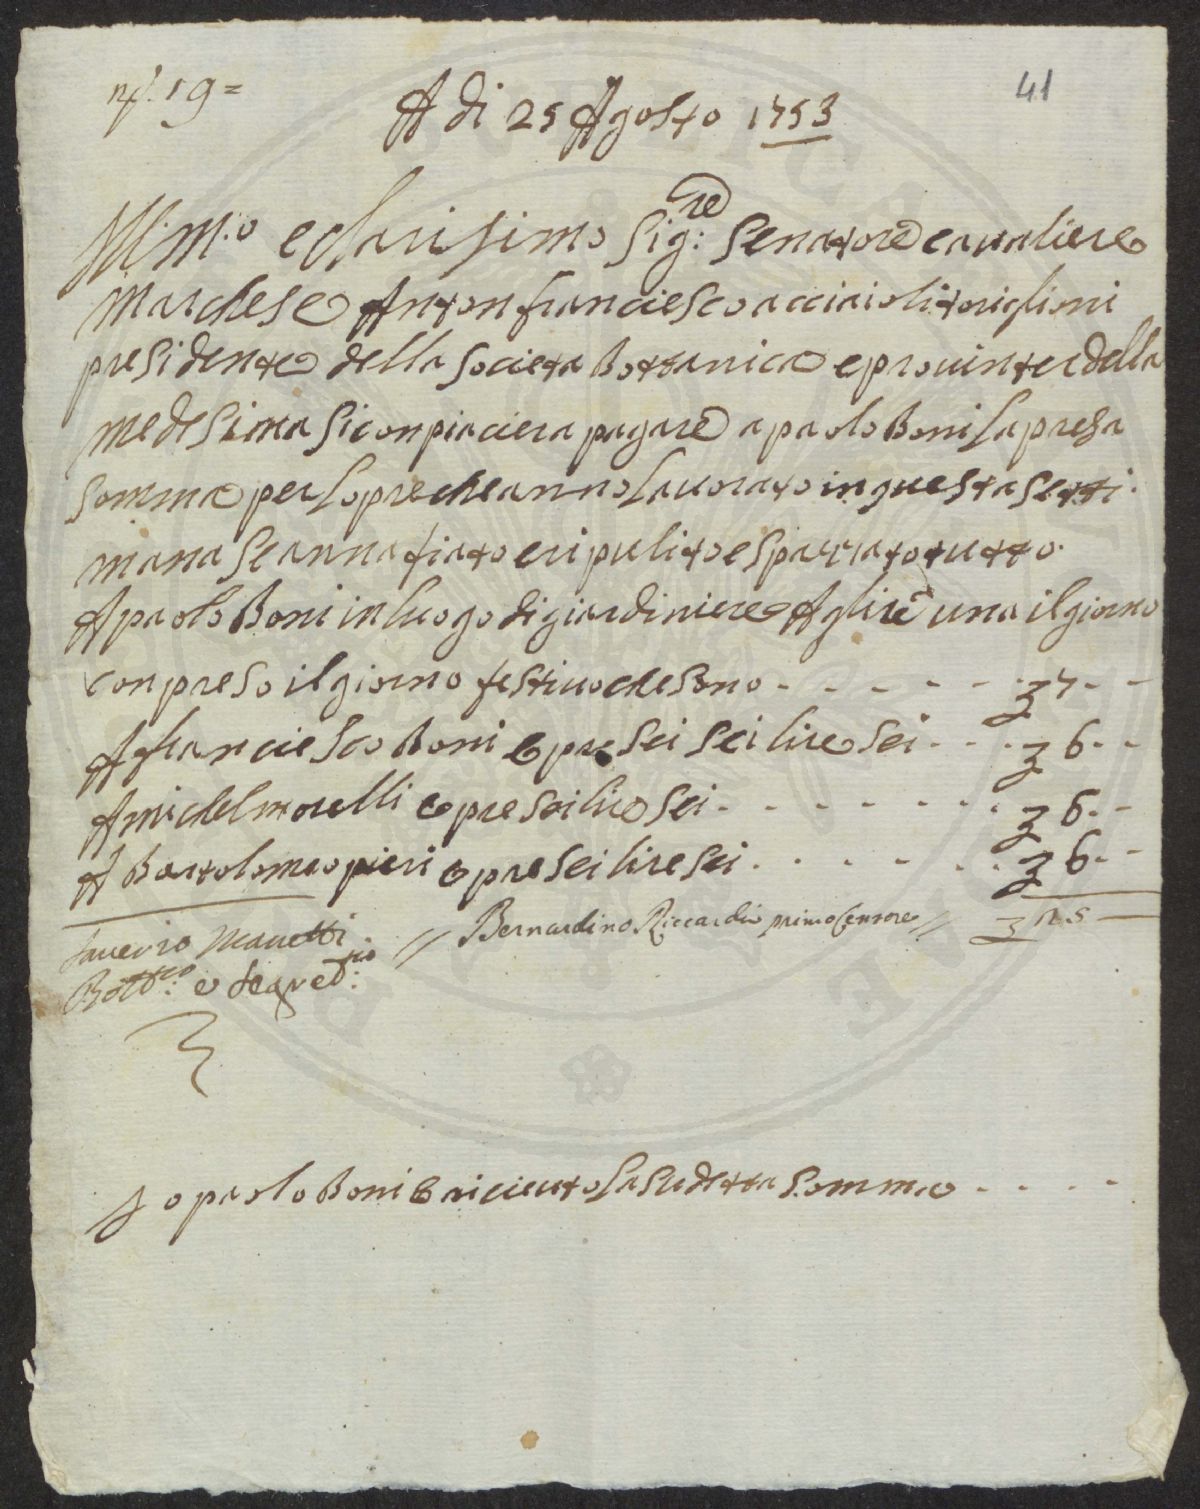 n.° 19=
41
A di 25 Agosto 1753
Ill:m:o e clarisimo Sig:re Senatore cavaliere
Marchese Anton franciesco acciaioli toriglioni
presidente della Societa Bottanica e provinter della
medesima si conpiaciera pagare a paolo Boni la presa
somma per lopre che anno lavorato in questa setti
mana se annafiato e ripulito e spazzato tutto
A paolo Boni in luogo di giardiniere A lire una il giorno
conpreso il giorno festivo che sono - - - - - - 7 - -
A franciesco Boni opre sei sei lire sei - - - 6 - -
A michel morelli opre sei lire sei - - - - - - 6 - -
A Bartolomeo pieri opre sei lire sei - - - - - 6 - -
Saverio Manetti // Bernardino Riccardi primo Censore // 25 —
Bott:co e Segret:rio
Io paolo Boni o riceuto la sudetta somma - - - -